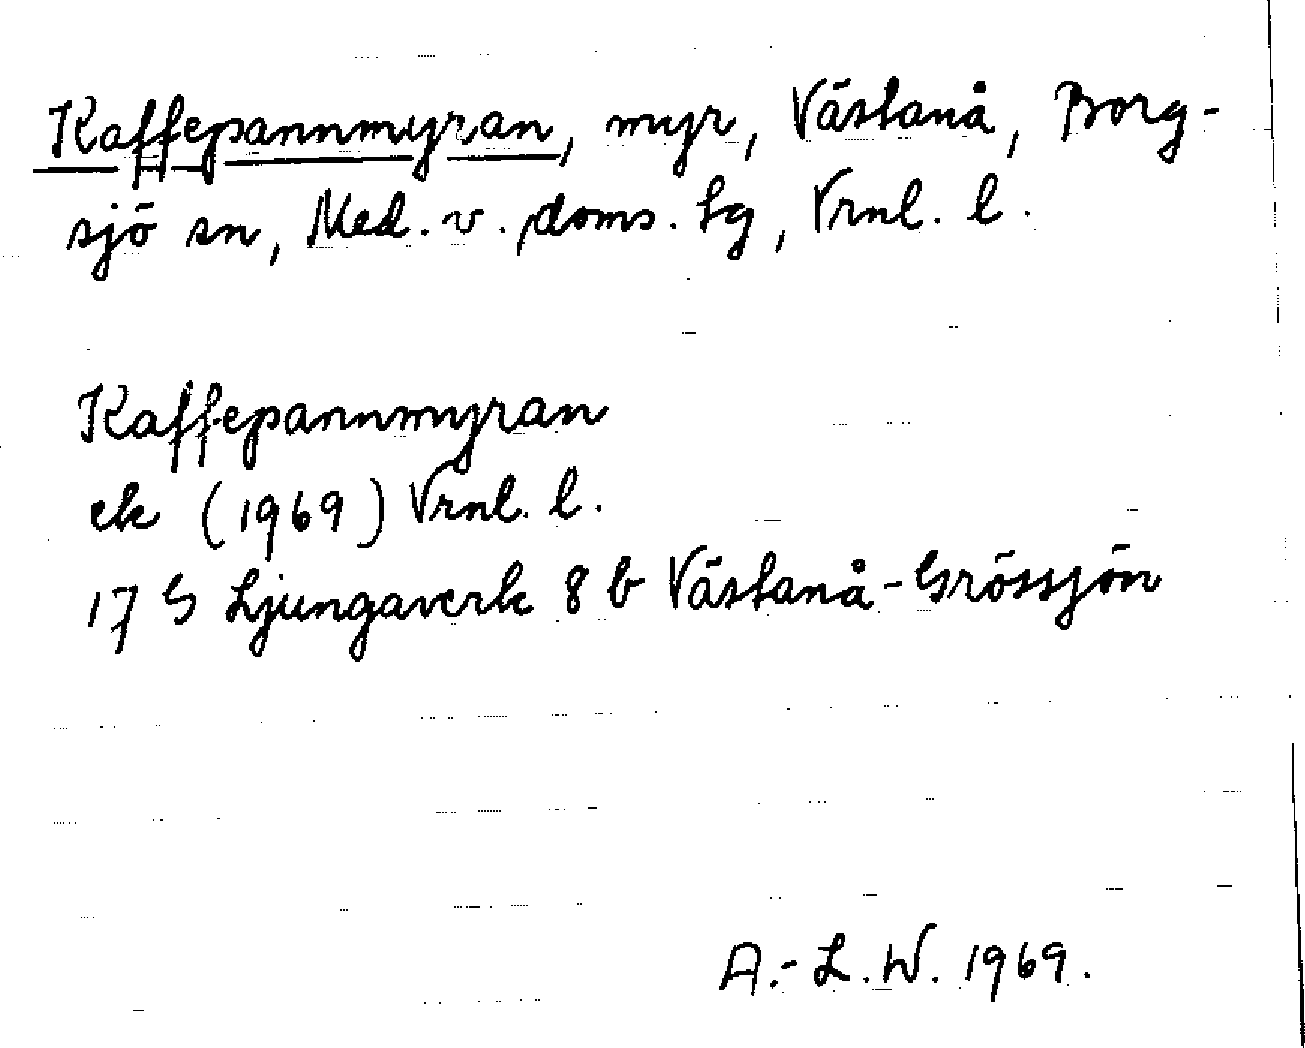 Kaffepannmyran, myr, Västanå, Borg-
sjö sn, Med. v. doms. lg, Vrnl. l.
Kaffepannmyran
ek (1969) Vrnl. l.
17 G Ljungaverk 8 b Västanå-Grössjön
A.-L.W. 1969.